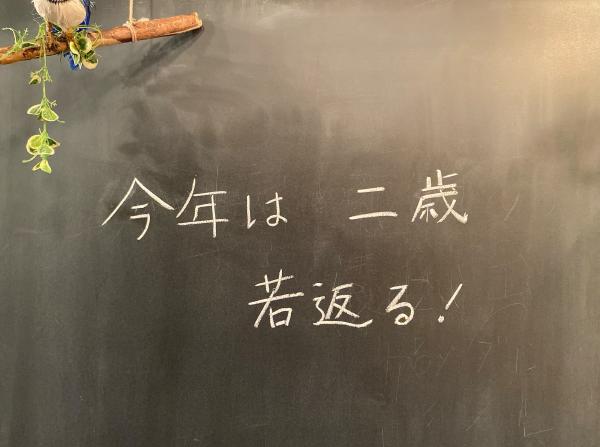 今年は 二歳
若返る!